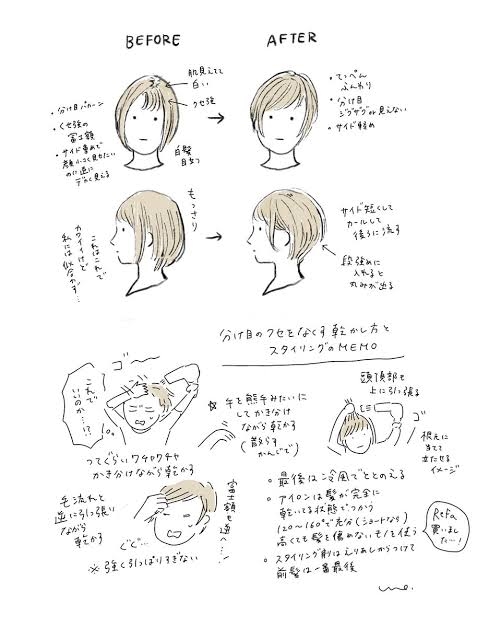 BEFORE
AFTER
肌見えてて
白い
クセ強
・分け目パカーン
・クセ強の
富士額
・サイド重めで
顔小さく見せたい
のに逆に
デカく見える
白髪
目立つ
・てっぺん
ふんわり
・分け目
ジグザグで見えない
・サイド軽め
もっさり
これはこれで
カワイイけど
私には似合わず…
サイド短くして
カールして
後ろに流す
段強めに
入れると
丸みが出る
分け目のクセをなくす乾かし方と
スタイリングのMEMO
ゴー
これで
いいのか…!?
つてぐらいワチャワチャ
かき分けながら乾かす
☆手を熊手みたいに
してかき分け
ながら乾かす
(散らす
かんじで)
頭頂部を
上に引っ張る
ゴー
根元に
当てて
立たせる
イメージ
毛流れと
逆に引っ張り
ながら
乾かす
ぐぐ…
※強く引っぱりすぎない
富士額も逆へ…!
・最後は冷風でととのえる
・アイロンは髪が完全に
乾いてる状態でつかう
120〜160°で充分(ショートなら)
高くても髪を傷めないモノを使う
ReFa
買いまし
た…!
・スタイリング剤はえりあしからつけて
前髪は一番最後